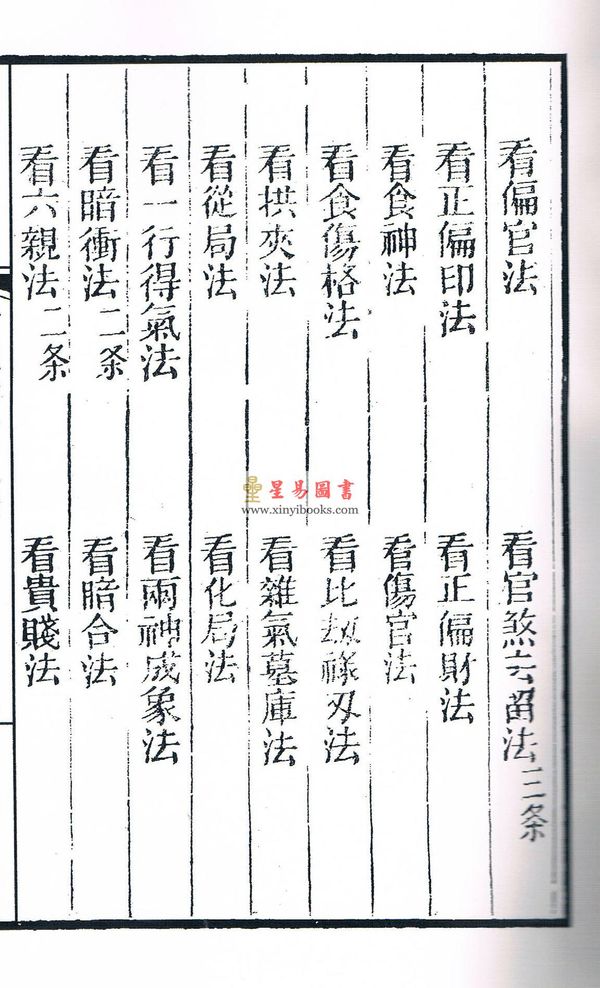 看偏官法
看官煞去留法二条
看正偏印法
看正偏財法
看食神法
看傷官法
看食傷格法
看比劫祿刃法
看拱夾法
看雜氣墓庫法
看從局法
看化局法
看一行得氣法
看兩神成象法
看暗衝法二条
看暗合法
看六親法二条
看貴賤法
星易圖書
www.xinyibooks.com